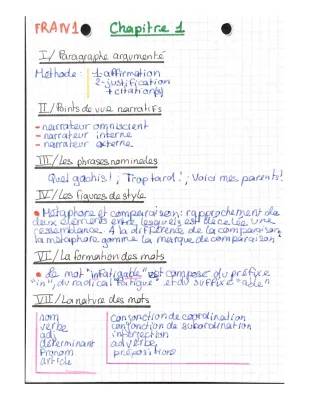 FRAN1 Chapitre 1
I/ Paragraphe argumenté
Méthode: 1-affirmation
2-justification
+ citation(s)
II/ Points de vue narratifs
- narrateur omniscient
- narrateur interne
- narrateur externe
III/ Les phrases nominales
Quel gachis!; Trop tard!; Voici mes parents!
IV/ Les figures de style
• Métaphore et comparaison: rapprochement de
deux éléments entre lesquels est décelée une
ressemblance. A la différence de la comparaison,
la métaphore gomme la marque de comparaison.
VI/ La formation des mots
• le mot "infatigable" est composé du préfixe
"in", du radical "fatigue" et du suffixe "able"
VII/ La nature des mots
nom conjonction de coordination
verbe conjonction de subordination
adj interjection
déterminant adverbe
Pronom prépositions
article